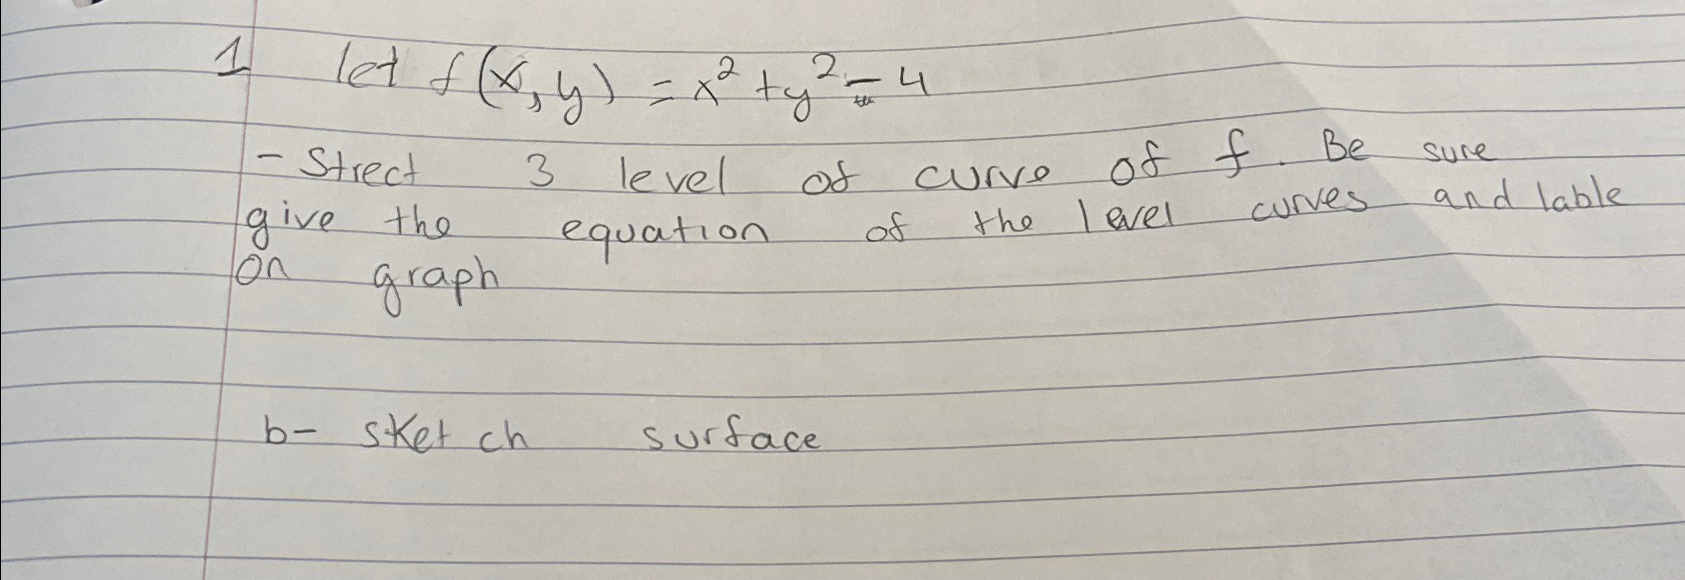 1 let f(x,y) = x² + y² - 4
- Strect 3 level of curve of f. Be sure
give the equation of the level curves and lable
on graph
b- sketch surface